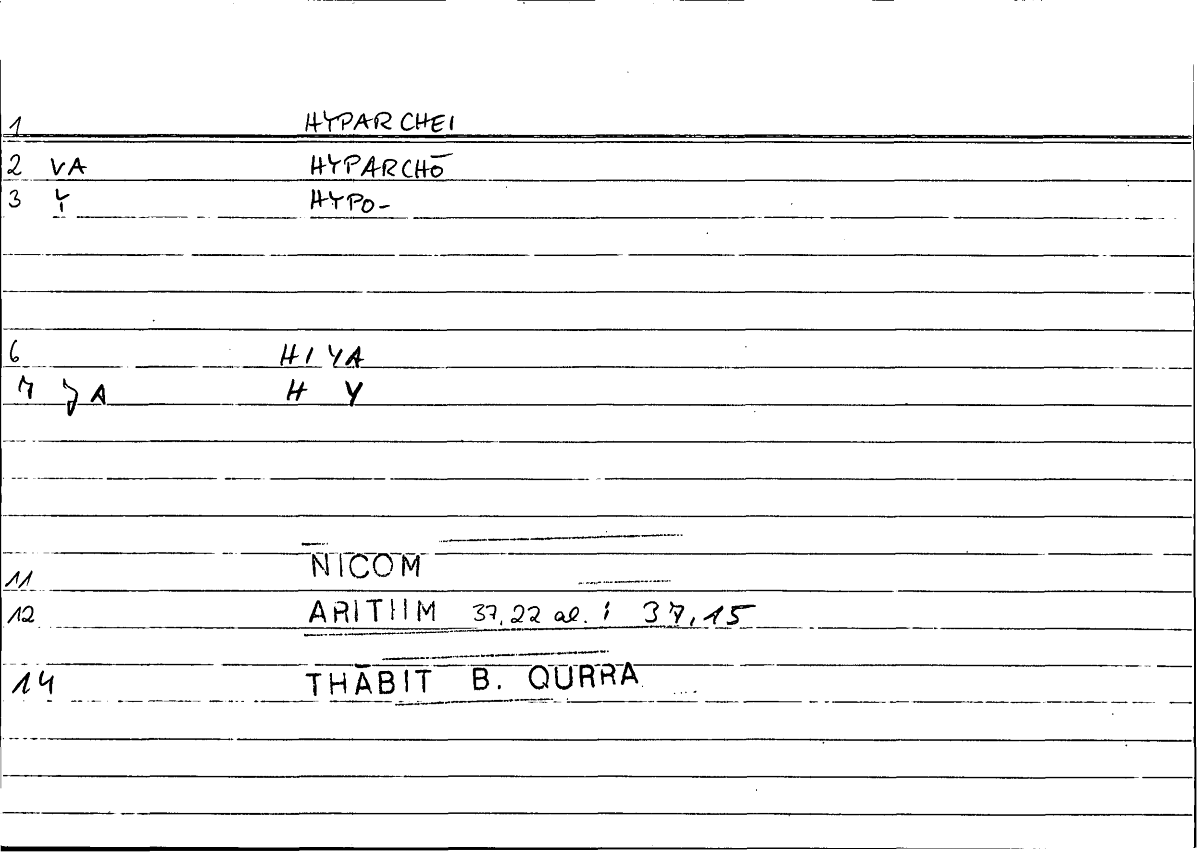 1 HYPARCHEI
2 VA HYPARCHŌ
3 Y HYPO-
6 HIYA
7 JA H Y
11 NICOM
12 ARITHM 37,22 al. ; 37,15
14 THĀBIT B. QURRA